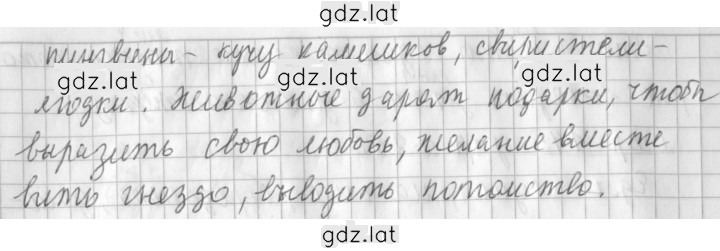 gdz.lat
пингвины - кучу камешков, свиристели -
gdz.lat gdz.lat
ягодки. Животные дарят подарки, чтобы
выразить свою любовь, желание вместе
gdz.lat gdz.lat
вить гнездо, выводить потомство.
gdz.lat